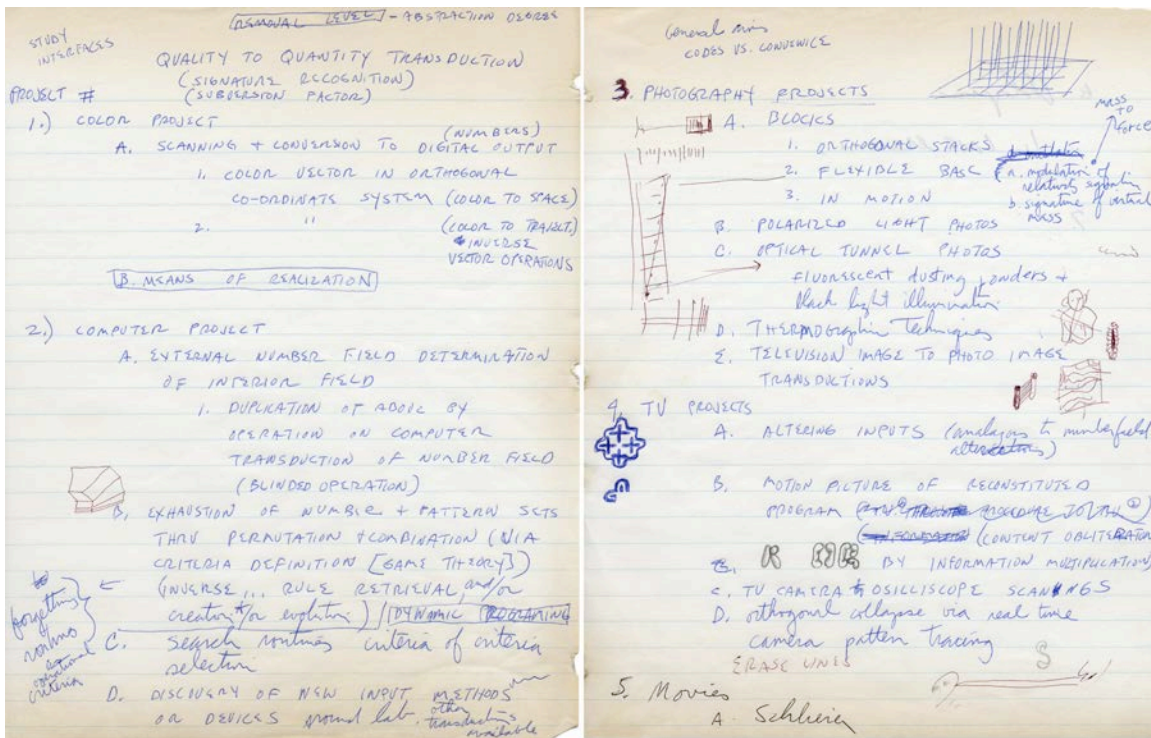 REMOVAL LEVEL - ABSTRACTION DEGREE
STUDY
INTERFACES
QUALITY TO QUANTITY TRANSDUCTION
(SIGNATURE RECOGNITION)
(SUBVERSION FACTOR)
PROJECT #
1.) COLOR PROJECT
(NUMBERS)
A. SCANNING + CONVERSION TO DIGITAL OUTPUT
1. COLOR VECTOR IN ORTHOGONAL
CO-ORDINATE SYSTEM (COLOR TO SPACE)
2. " (COLOR TO TRAJECT.)
INVERSE
VECTOR OPERATIONS
B. MEANS OF REALIZATION
2.) COMPUTER PROJECT
A. EXTERNAL NUMBER FIELD DETERMINATION
OF INTERIOR FIELD
1. DUPLICATION OF ABOVE BY
OPERATION ON COMPUTER
TRANSDUCTION OF NUMBER FIELD
(BLINDED OPERATION)
B. EXHAUSTION OF NUMBER + PATTERN SETS
THRU PERMUTATION + COMBINATION (VIA
CRITERIA DEFINITION [GAME THEORY])
(INVERSE... RULE RETRIEVAL and/or
creation + /or evolution) DYNOMIC PROGRAMING
forgetting
criteria
C. Search routines criteria of criteria
selection
D. DISCOVERY OF NEW INPUT METHODS
OR DEVICES around lab. other
transductions
available
General aims
CODES VS.
3. PHOTOGRAPHY PROJECTS
MASS
TO
FORCE
A. BLOCKS
1. ORTHOGONAL STACKS
2. FLEXIBLE BASE
a. modulation of
relatively
3. IN MOTION
b. signature of virtual
mass
B. POLARIZED LIGHT PHOTOS
C. OPTICAL TUNNEL PHOTOS
fluorescent dusting powders +
black light illumination
D. THERMOGRAPHIC Techniques
E. TELEVISION IMAGE TO PHOTO IMAGE
TRANSDUCTIONS
4. TV PROJECTS
A. ALTERING INPUTS (analagous to numberfield
alterations)
B. MOTION PICTURE OF RECONSTITUTED
PROGRAM
(CONTENT OBLITERATION
BY INFORMATION MULTIPLICATION
C. TV CAMERA OSILLISCOPE SCANNINGS
D. orthogonal collapse via real time
camera pattern tracing
ERASE LINES
5. Movies
A.